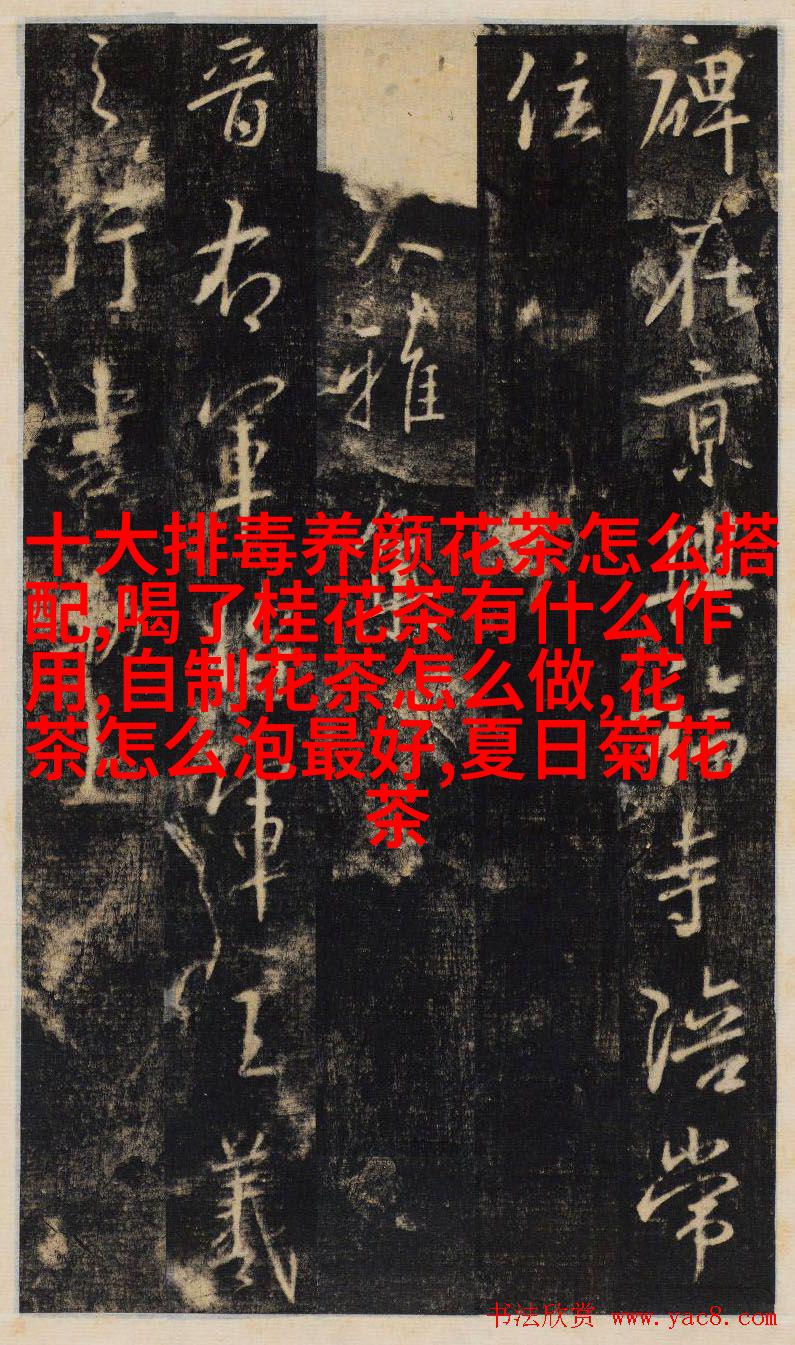 碑在京興福寺陪常
住
雅集
晉右軍將軍王羲
之行書
十大排毒养颜花茶怎么搭
配,喝了桂花茶有什么作
用,自制花茶怎么做,花
茶怎么泡最好,夏日菊花
茶
书法欣赏 www.yac8.com